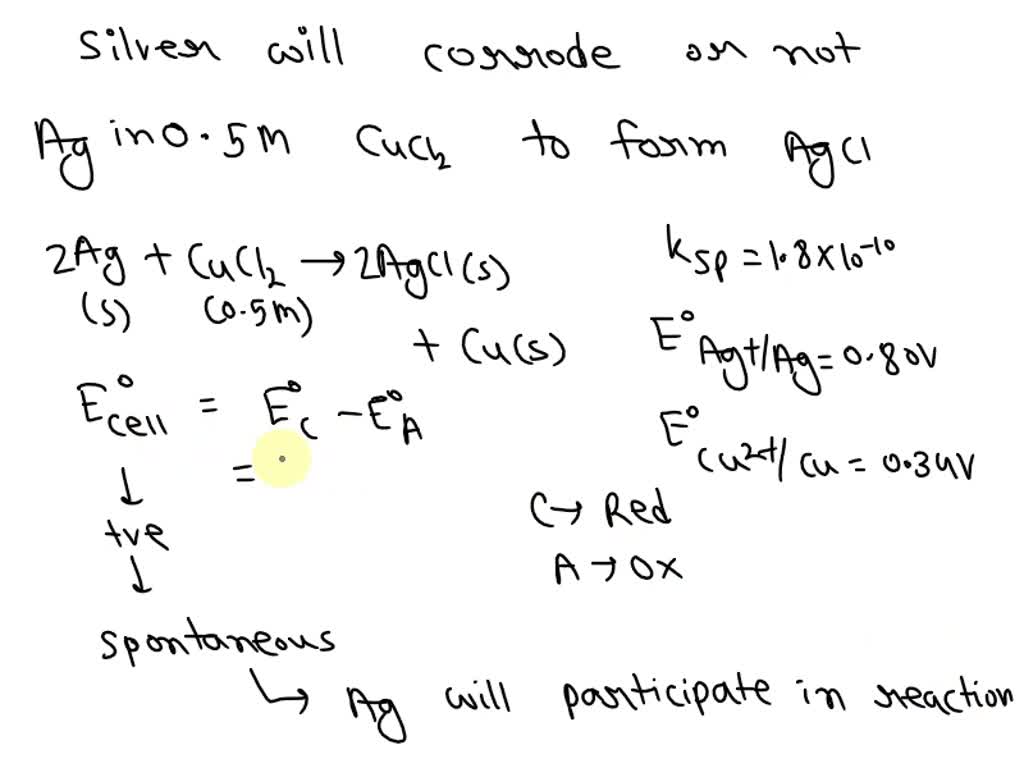 Silver will corrode or not
Ag in 0.5M CuCl₂ to form AgCl
2Ag + CuCl₂ → 2AgCl(s)
(s) (0.5M)
+ Cu(s)
Ksp = 1.8×10⁻¹⁰
E° Ag+/Ag = 0.80V
E°cell = E°C − E°A
E° Cu²⁺/Cu = 0.34V
=
↓
+ve
↓
C → Red
A → OX
spontaneous
↳ Ag will participate in reaction